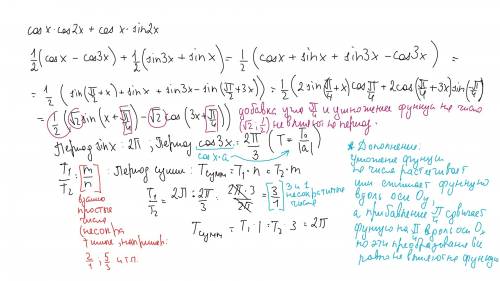 cosx·cos2x + cos x·sin2x
1/2 (cosx - cos3x) + 1/2 (sin3x + sinx) = 1/2 (cosx + sinx + sin3x - cos3x) =
= 1/2 (sin(π/2 + x) + sinx + sin3x - sin(π/2 + 3x)) = 1/2 (2 sin(π/4 + x) cos π/4 + 2cos(π/4 + 3x) sin(-π/4)) =
= 1/2 (√2 sin(x + π/4) - √2 cos(3x + π/4)) добавка угла π/4 и умножение функции на число (√2; 1/2) не влияют на период.
Период sinx: 2π; Период cos3x: 2π/3 (T = T₀/|a|)
cos x·a
T₁/T₂ = m/n; Период суммы: Tсуммы = T₁·n = T₂·m
взаимно простые числа (несократимые, например: 2/1; 5/3 и т.п.
T₁/T₂ = 2π : 2π/3 = 2π·3/2π = 3/1 3 и 1 несократимые числа
Tсуммы = T₁·1 = T₂·3 = 2π
* Дополнение:
умножение функции
на число растягивает
или сжимает функцию
вдоль оси Oy,
а прибавление π/4 сдвигает
функцию на π/4 вдоль оси O
но эти преобразования все
равно не влияют на функцию